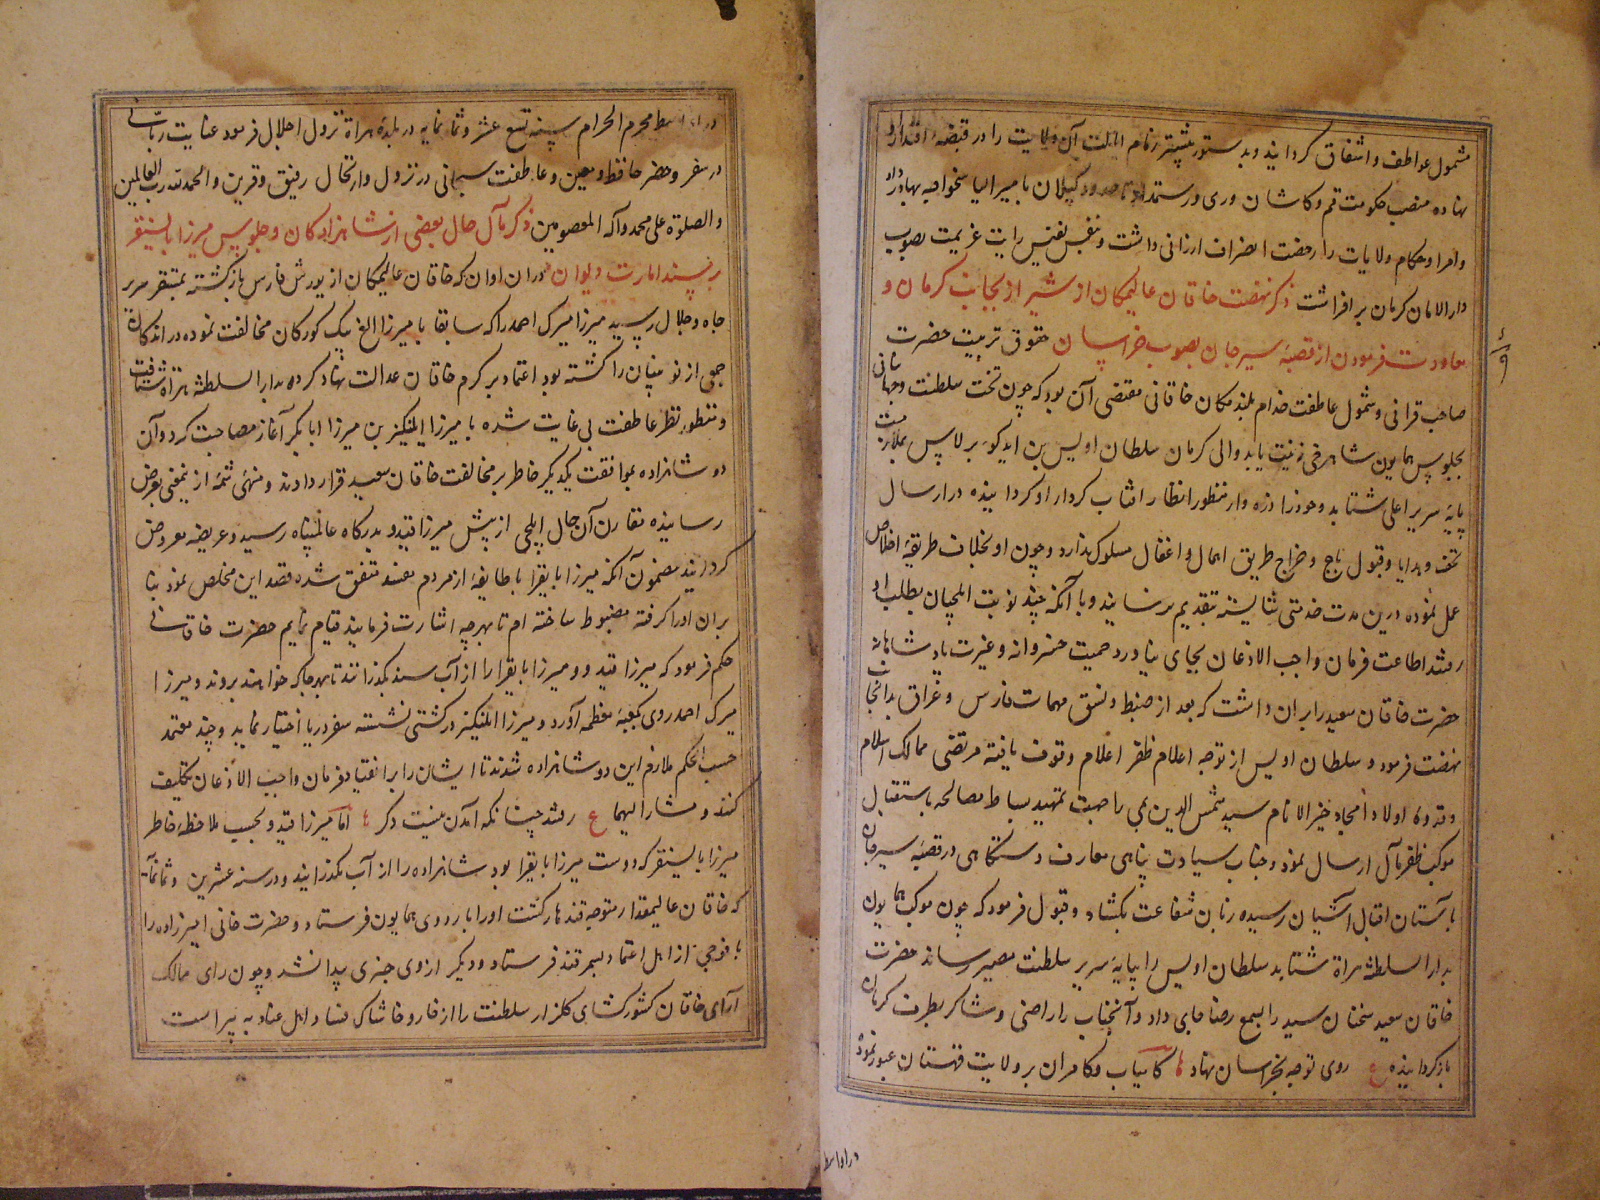 مشمول عواطف و اشفاق کردانید و بدستور پیشتر زمام ایالت آن ولایت را در قبضه اقتدار او
نهاده منصب حکومت قم و کاشان و ری و رستمدار تا حدود کیلان بامیر الیاس خواجه بهادر داد
و امرا و حکام ولایات را رخصت انصراف ارزانی داشت و بنفس نفیس رایت عزیمت بصوب
دار الامان کرمان برافراشت ذکر نهضت خاقان عالیمکان از شیراز بجانب کرمان و
معاودت فرمودن از قصبهٔ سیرجان بصوب خراسان حقوق تربیت حضرت
صاحب قرانی و شمول عاطفت خدام بلند مکان خاقانی مقتضی آن بود که چون تخت سلطنت و جهانبانی
بجلوس همایون شاهرخی زینت یابد والی کرمان سلطان اویس بن ایدکو برلاس بملازمت
پایهٔ سریر اعلی شتابد و خود را ذره وار منظور انظار افتاب کردار او کردانیده در ارسال
تحف و هدایا و قبول باج و خراج طریق اهمال و اغفال مسلوک ندارد و چون او بخلاف طریقهٔ اخلاص
عمل نموده درین مدت خدمتی شایسته بتقدیم نرسانید و با آنکه چند نوبت ایلچیان بطلب او
رفتند اطاعت فرمان واجب الاذعان بجای نیاورد حمیت خسروانه و غیرت پادشاهانه
حضرت خاقان سعید را بران داشت که بعد از ضبط و نسق مهمات فارس و عراق بدانجانب
نهضت فرمود و سلطان اویس از توجه اعلام ظفر اعلام وقوف یافته مرتضی ممالک اسلام
و قدوهٔ اولاد امجاد خیر الانام سید شمس الدین بمی را جهت تمهید بساط مصالحه باستقبال
موکب ظفر مآل ارسال نمود و جناب سیادت پناهی معارف دستکاهی در قصبهٔ سیرجان
بآستان اقبال آشیان رسیده زبان شفاعت بکشاد و قبول فرمود که چون موکب همایون
بدار السلطنه هراة شتابد سلطان اویس را بپایهٔ سریر سلطنت مصیر رساند حضرت
خاقان سعید سخنان سید را بسمع رضا جای داد و آنجناب را راضی و شاکر بطرف کرمان
بازکردانیده ع روی توجه بخراسان نهاد ها کامیاب و کامران بر ولایت قهستان عبور نموده
در اواسط
در اواسط محرم الحرام سنه تسع عشر و ثمانمایه در بلدهٔ هراة نزول اجلال فرمود عنایت ربانی
در سفر و حضر حافظ و معین و عاطفت سبحانی در نزول و ارتحال رفیق و قرین و الحمد لله رب العالمین
و الصلوة علی محمد و آله المعصومین ذکر مآل حال بعضی از شاهزادکان و جلوس میرزا بایسنقر
بر مسند امارت دیوان دران اوان که خاقان عالیمکان از یورش فارس بازکشته بمستقر سریر
جاه و جلال رسید میرزا میرک احمد را که سابقا با میرزا الغ بیک کورکان مخالفت نموده در اندکان
جمعی از نوئینان را کشته بود اعتماد بر کرم خاقان عدالت نهاد کرده بدار السلطنه هراة شتافت
و منظور نظر عاطفت بی غایت شده با میرزا ایلنکیز بن میرزا ابابکر آغاز مصاحبت کرد و آن
دو شاهزاده بموافقت یکدیکر خاطر بر مخالفت خاقان سعید قرار دادند و منهی شمهٔ ازین معنی بعرض
رسانیده مقارن آن حال ایلچی از پیش میرزا قیدو بدرکاه عالمپناه رسید و عریضه معروض
کردانید مضمون آنکه میرزا بایقرا با طایفهٔ از مردم مفسد متفق شده قصد این مخلص نمود بنا
بران او را کرفته مضبوط ساخته ام تا بهرچه اشارت فرمایند قیام نمایم حضرت خاقانی
حکم فرمود که میرزا قیدو و میرزا بایقرا را از آب سند بکذرانند تا بهرجا که خواهند بروند و میرزا
میرک احمد روی بکعبهٔ معظمه آورد و میرزا ایلنکیز در کشتی نشسته سفر دریا اختیار نماید و چند معتمد
حسب الحکم ملازم این دو شاهزاده شدند تا ایشان را بر انقیاد فرمان واجب الاذعان تکلیف
کنند و مشار الیهما ع رفتند چنانکه آمدن نیست دکر ها اما میرزا قیدو بحسب ملاحظهٔ خاطر
میرزا بایسنقر که دوست میرزا بایقرا بود شاهزاده را از آب نکذرانید و در سنه عشرین و ثمانمایه
که خاقان عالیمقدار متوجه قندهار کشت او را باردوی همایون فرستاد و حضرت خانی امیرزاده را
با فوجی از اهل اعتماد بسمرقند فرستاد و دیکر از وی خبری پیدا نشد و چون رای ممالک
آرای خاقان کشورکشای کلزار سلطنت را از خار و خاشاک فساد اهل عناد به پیراست